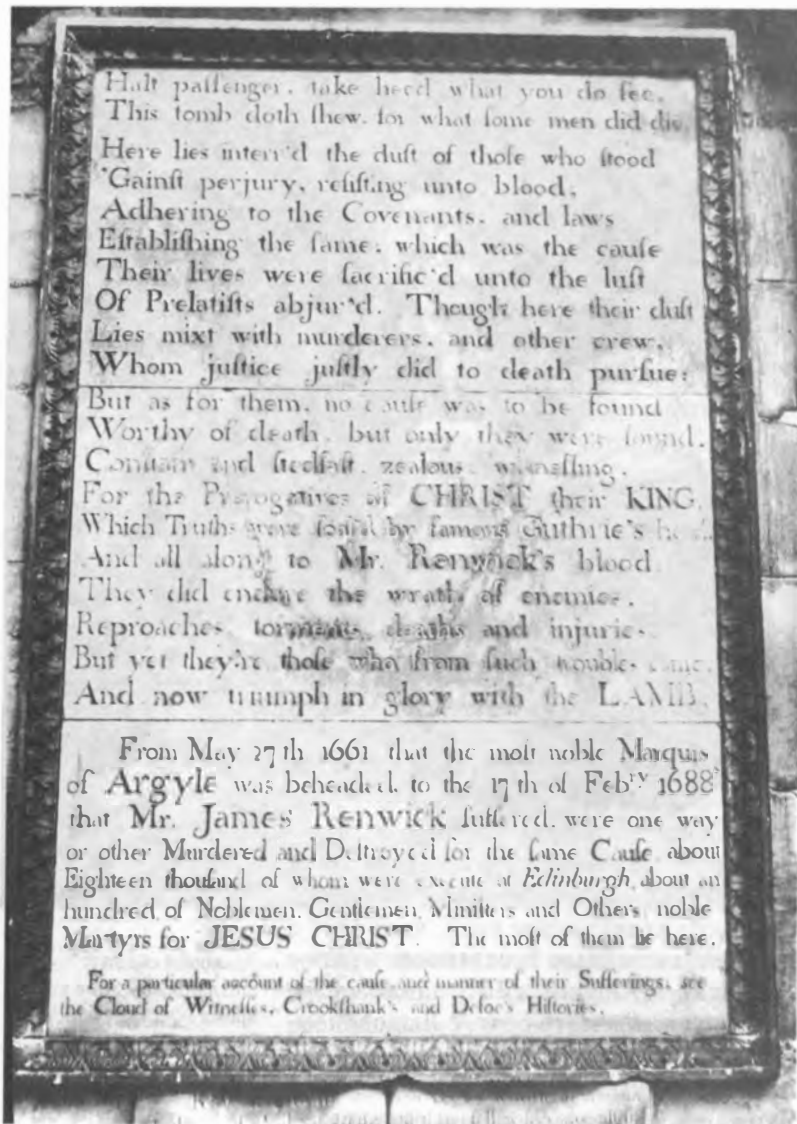 Halt paſſenger, take heed what you do ſee,
This tomb doth ſhew, for what ſome men did die.
Here lies interr'd the duſt of thoſe who ſtood
'Gainſt perjury, reſiſting unto blood,
Adhering to the Covenants, and laws
Eſtabliſhing the ſame, which was the cauſe
Their lives were ſacrific'd unto the luſt
Of Prelatiſts abjur'd. Though here their duſt
Lies mixt with murderers, and other crew,
Whom juſtice juſtly did to death purſue:
But as for them, no cauſe was to be found
Worthy of death, but only they were found,
Conſtant and ſtedfaſt, zealous, witneſſing,
For the Prerogatives of CHRIST their KING.
Which Truths were ſeal'd by famous Guthrie's
And all along to Mr. Renwick's blood
They did endure the wrath of enemies,
Reproaches, torments, deaths and injuries
But yet they're thoſe who from ſuch troubles came,
And now triumph in glory with the LAMB.
From May 27th 1661 that the moſt noble Marquis
of Argyle was beheaded, to the 17th of Febry 1688
that Mr. James Renwick ſuffered, were one way
or other Murdered and Deſtroyed for the ſame Cauſe, about
Eighteen thouſand of whom were execute at Edinburgh about an
hundred, of Noblemen, Gentlemen, Miniſters and Others, noble
Martyrs for JESUS CHRIST. The moſt of them lie here.
For a particular account of the cauſe and manner of their Sufferings, ſee
the Cloud of Witneſſes, Crookſhank's and Defoe's Hiſtories.